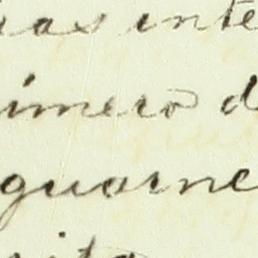 as inte
imero d
guarne